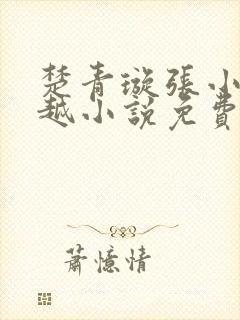 楚青璇張小
越小說免費
蕭憶情